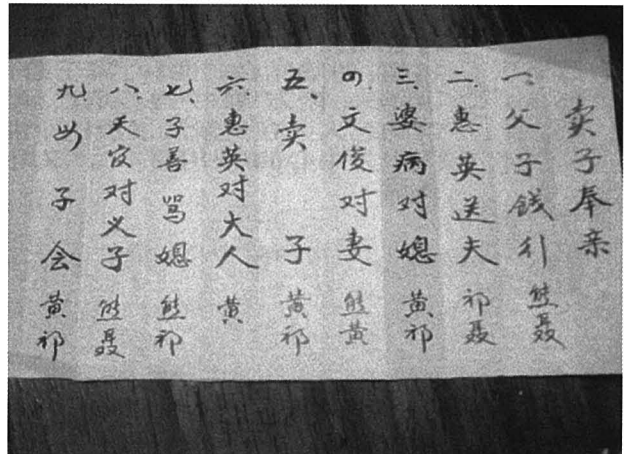 卖子奉亲
一、父子钱行 熊聂
二、惠英送夫 祁聂
三、婆病对媳 黄祁
四、文俊对妻 熊黄
五、卖子 黄祁
六、惠英对大人 黄
七、子善骂媳 熊祁
八、天官对义子 熊聂
九、母子会 黄祁